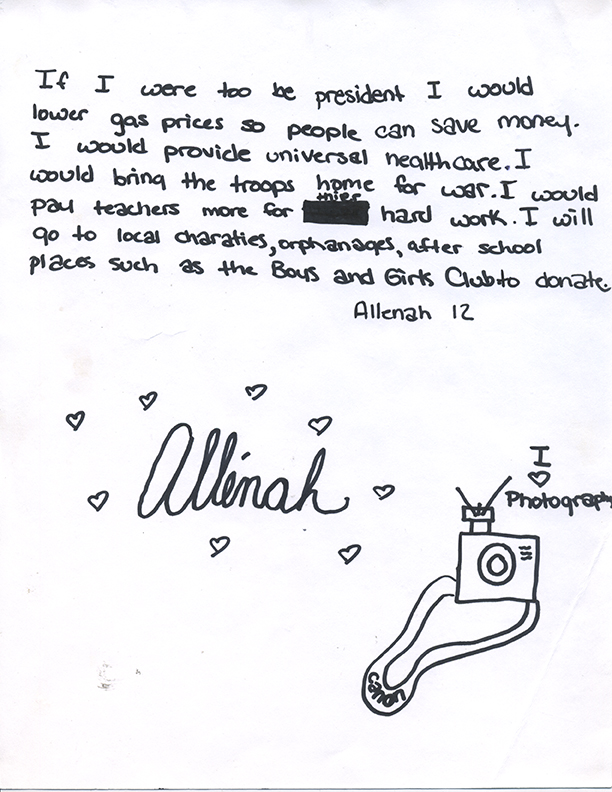 If I were too be president I would
lower gas prices so people can save money.
I would provide universal healthcare. I
would bring the troops home for war. I would
thier
pay teachers more for hard work. I will
go to local charaties, orphanages, after school
places such as the Boys and Girls Club to donate.
Allenah 12
Allenah
I
Photography